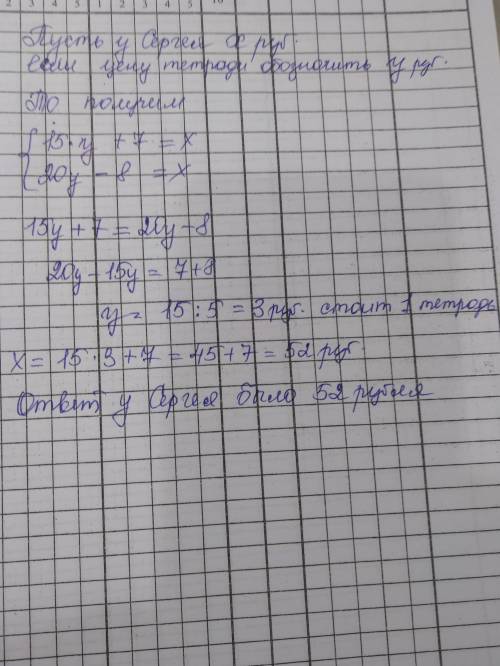 Пусть у Сергея x руб.
если цену тетради обозначить y руб.
То получим
15·y + 7 = x
20y - 8 = x
15y + 7 = 20y - 8
20y - 15y = 7 + 8
y = 15 : 5 = 3 руб. стоит 1 тетрадь
x = 15 · 3 + 7 = 45 + 7 = 52 руб.
Ответ у Сергея было 52 рубля